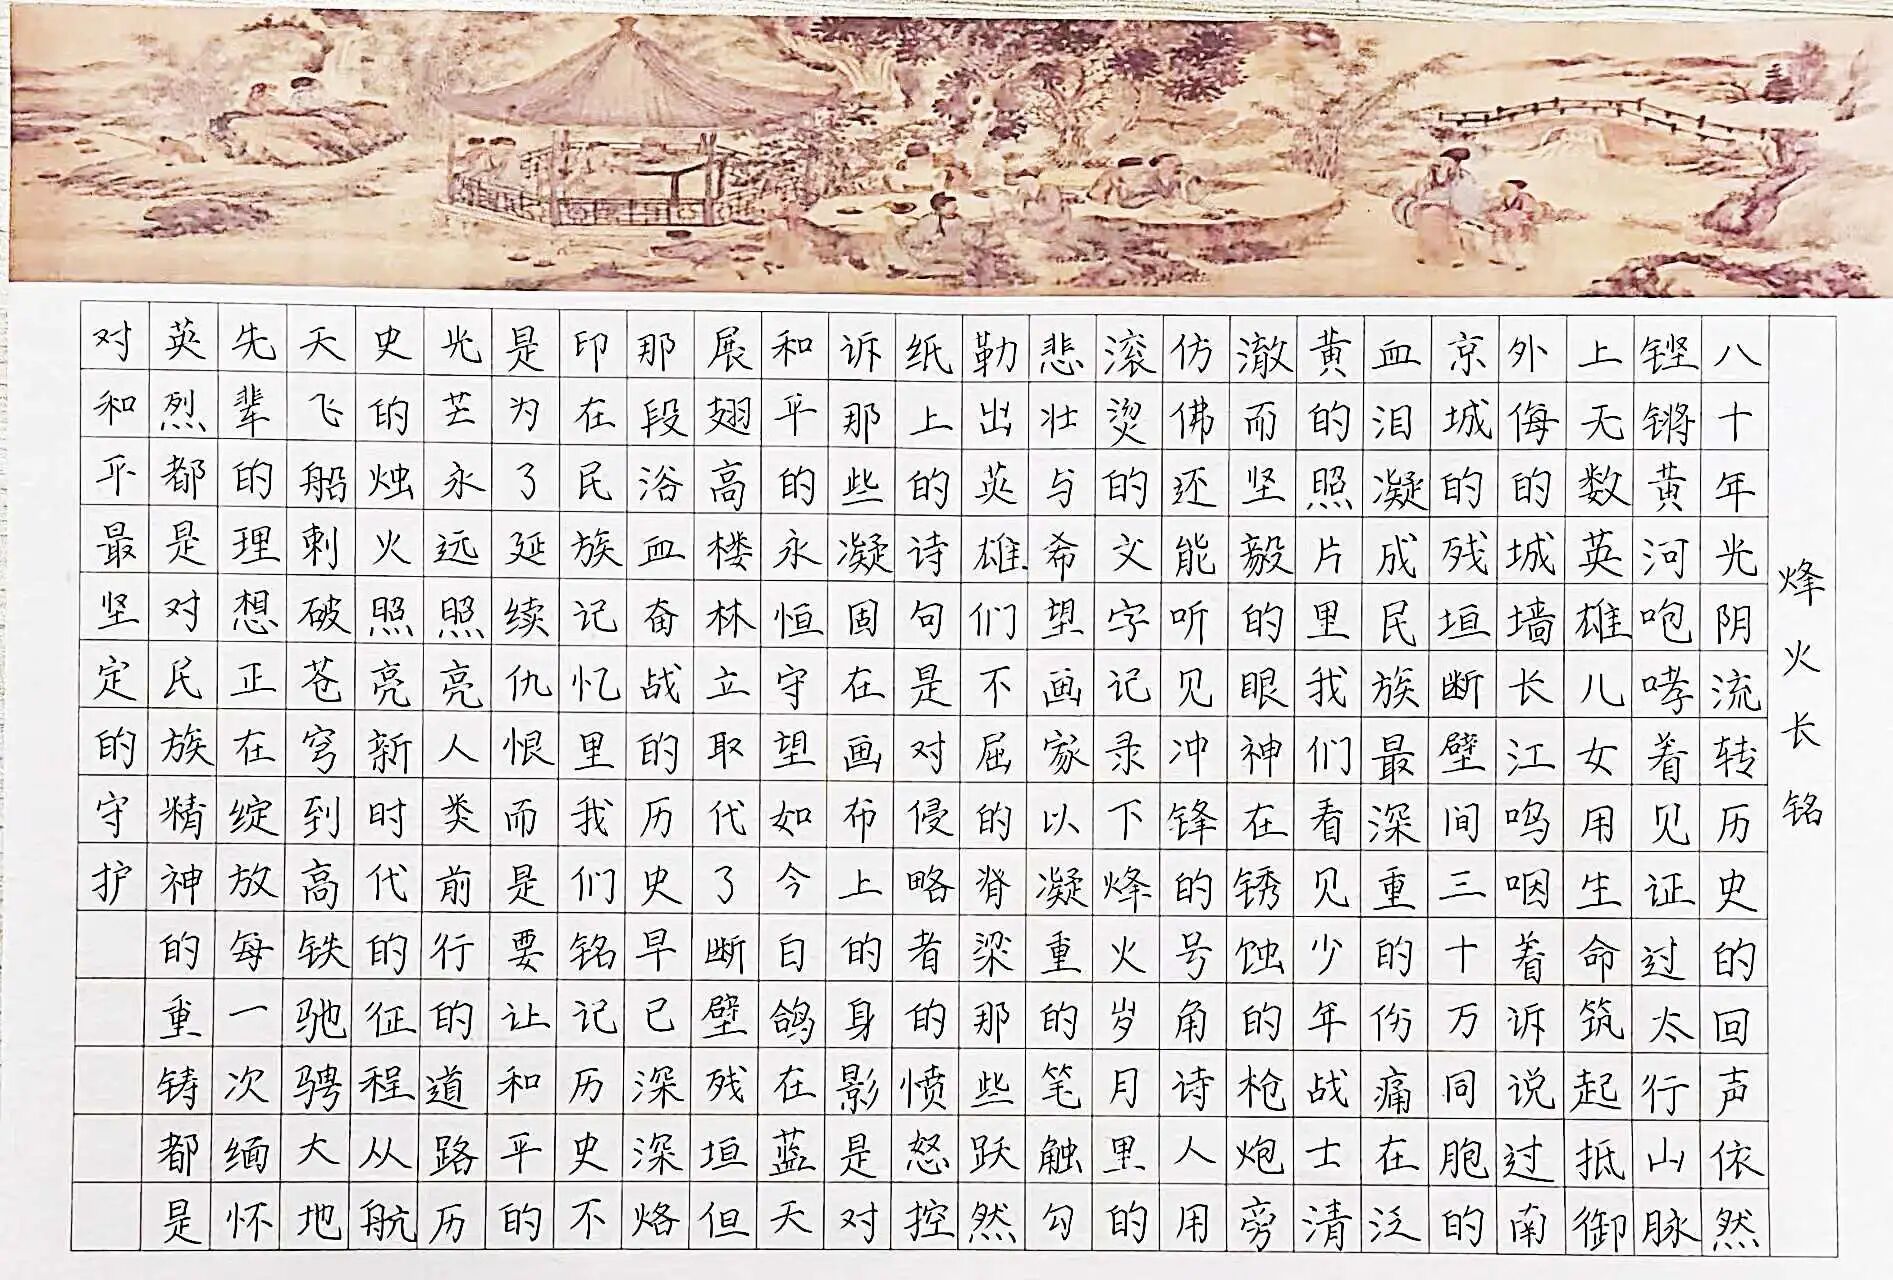 烽火长铭
八十年光阴流转历史的回声依然
铿锵黄河咆哮着见证过太行山脉
上无数英雄儿女用生命筑起抵御
外侮的城墙长江呜咽着诉说过南
京城的残垣断壁间三十万同胞的
血泪凝成民族最深重的份痛在泛
黄的照片里我们看见少年战士清
澈而坚毅的眼神在锈蚀的枪炮旁
仿佛还能听见冲锋的号角诗人用
滚烫的文字记录下烽火岁月里的
悲壮与希望画家以凝重的笔触勾
勒出英雄们不屈的脊梁那些跃然
纸上的诗句是对侵略者的愤怒控
诉那些凝固在画布上的身影是对
和平的永恒守望如今白鸽在蓝天
展翅高楼林立取代了断壁残垣但
那段浴血奋战的历史早已深深烙
印在民族记忆里我们铭记历史不
是为了延续仇恨而是要让和平的
光芒永远照亮人类前行的道路历
史的烛火照亮新时代的征程从航
天飞船刺破苍穹到高铁驰骋大地
先辈的理想正在绽放每一次缅怀
英烈都是对民族精神的重铸都是
对和平最坚定的守护